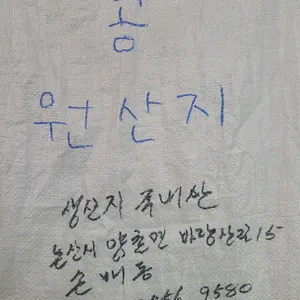 원산지
생산지 국내산
논산시 양촌면 바랑산로 15
손배동
9580